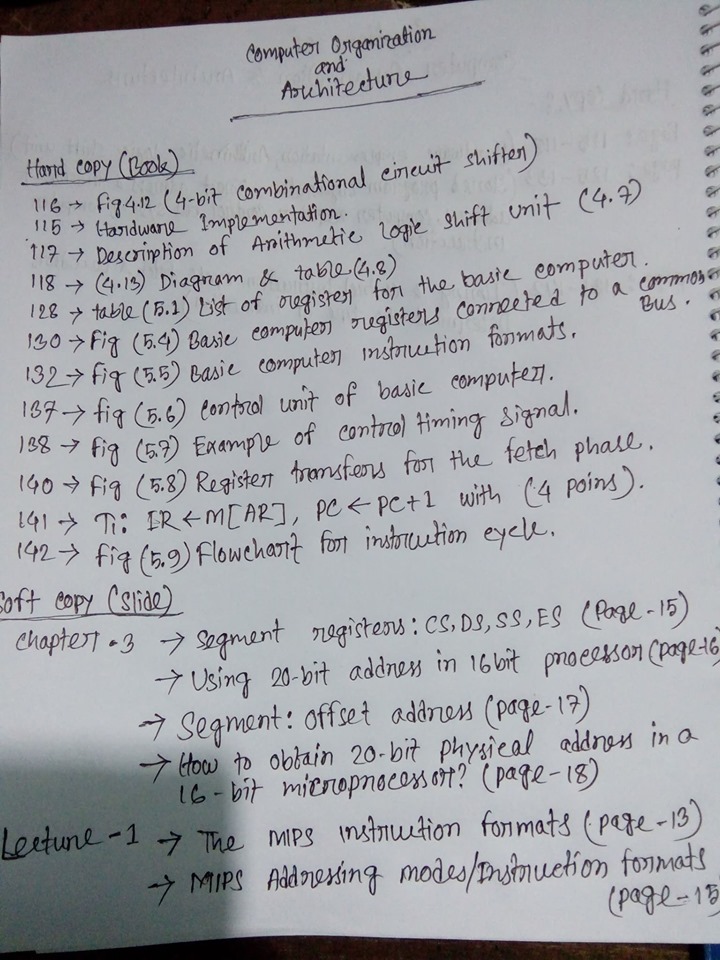 Computer Organization
and
Architecture
Hard copy (Book)
116 → Fig 4.12 (4-bit combinational circuit shifter)
115 → Hardware Implementation.
117 → Description of Arithmetic logic shift unit (4.7)
118 → (4.13) Diagram & table (4.8)
128 → table (5.1) List of register for the basic computer.
130 → Fig (5.4) Basic computer registers connected to a common
Bus.
132 → Fig (5.5) Basic computer instruction formats.
137 → fig (5.6) control unit of basic computer.
138 → Fig (5.7) Example of control timing signal.
140 → Fig (5.8) Register transfers for the fetch phase.
141 → T1: IR ← M[AR], PC ← PC+1 with (4 poins).
142 → Fig (5.9) Flowchart for instrcution cycle.
Soft copy (Slide)
Chapter-3 → Segment registers: CS, DS, SS, ES (Page-15)
→ Using 20-bit address in 16bit processor (page-16
→ Segment: offset address (page-17)
→ How to obtain 20-bit physical address in a
16-bit microprocessor? (page-18)
Lecture-1 → The MIPS instruction formats (page-13)
→ MIPS Addressing modes/Instruction formats
(page-15